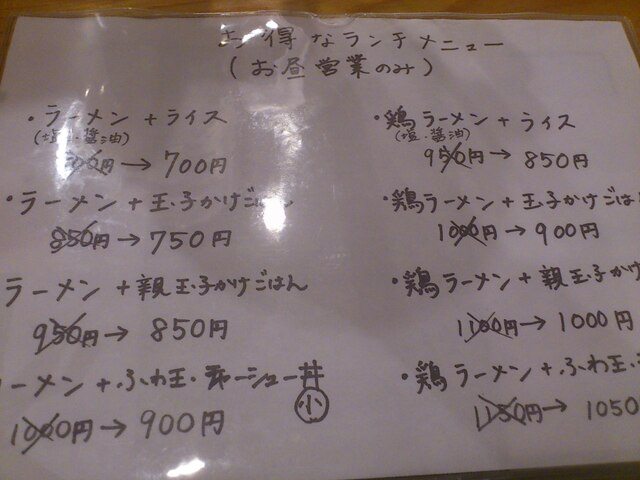 お得なランチメニュー
(お昼営業のみ)
・ラーメン+ライス
(塩・醤油)
→700円
・ラーメン+玉子かけごはん
850円→750円
ラーメン+親玉子かけごはん
950円→850円
ラーメン+ふわ玉・チャーシュー丼
小
1000円→900円
・鶏ラーメン+ライス
(塩・醤油)
950円→850円
・鶏ラーメン+玉子かけごは
1000円→900円
・鶏ラーメン+親玉子かけ
1100円→1000円
・鶏ラーメン+ふわ玉・
1150円→1050